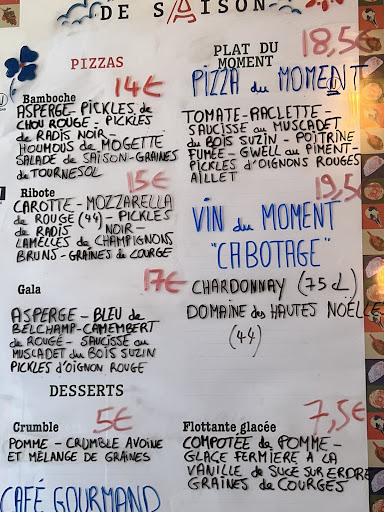 DE SAISON
PIZZAS
14€
Bamboche
ASPERGE - PICKLES de
CHOU ROUGE - PICKLES
de RADIS NOIR -
HOUMOUS de MOGETTE
SALADE de SAISON - GRAINES
de TOURNESOL
15€
Ribote
CAROTTE - MOZZARELLA
de ROUGÉ (44) - PICKLES
de RADIS NOIR -
LAMELLES de CHAMPIGNONS
BRUNS - GRAINES de COURGE
17€
Gala
ASPERGE - BLEU de
BELCHAMP - CAMEMBERT
de ROUGÉ - SAUCISSE au
MUSCADET du BOIS SUZIN
PICKLES d'OIGNON ROUGE
DESSERTS
5€
Crumble
POMME - CRUMBLE AVOINE
ET MÉLANGE DE GRAINES
CAFÉ GOURMAND
PLAT DU
MOMENT
18,5€
PIZZA du MOMENT
TOMATE - RACLETTE -
SAUCISSE au MUSCADET
du BOIS SUZIN - POITRINE
FUMÉE - GWELL au PIMENT -
PICKLES d'OIGNONS ROUGES
AILLET
19,5€
VIN du MOMENT
"CABOTAGE"
CHARDONNAY (75 cL)
DOMAINE des HAUTES NOËLLES
(44)
7,5€
Flottante glacée
COMPOTÉE de POMME -
GLACE FERMIÈRE À LA
VANILLE de SUCÉ SUR ERDRE
GRAINES de COURGES